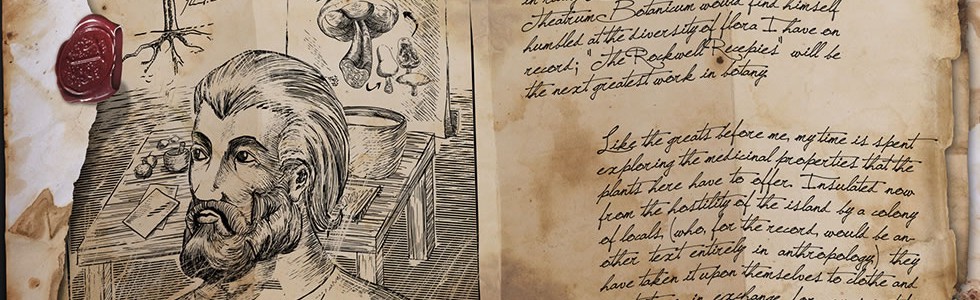 Theatrum Botanicum would find himself
humbled at the diversity of flora I have on
record; "The Rockwell Recepies" will be
the next greatest work in botany.
Like the greats before me, my time is spent
exploring the medicinal properties that the
plants here have to offer. Insulated now
from the hostility of the island by a colony
of locals, (who, for the record, would be an-
other text entirely in anthropology) they
have taken it upon themselves to clothe and
in exchange for